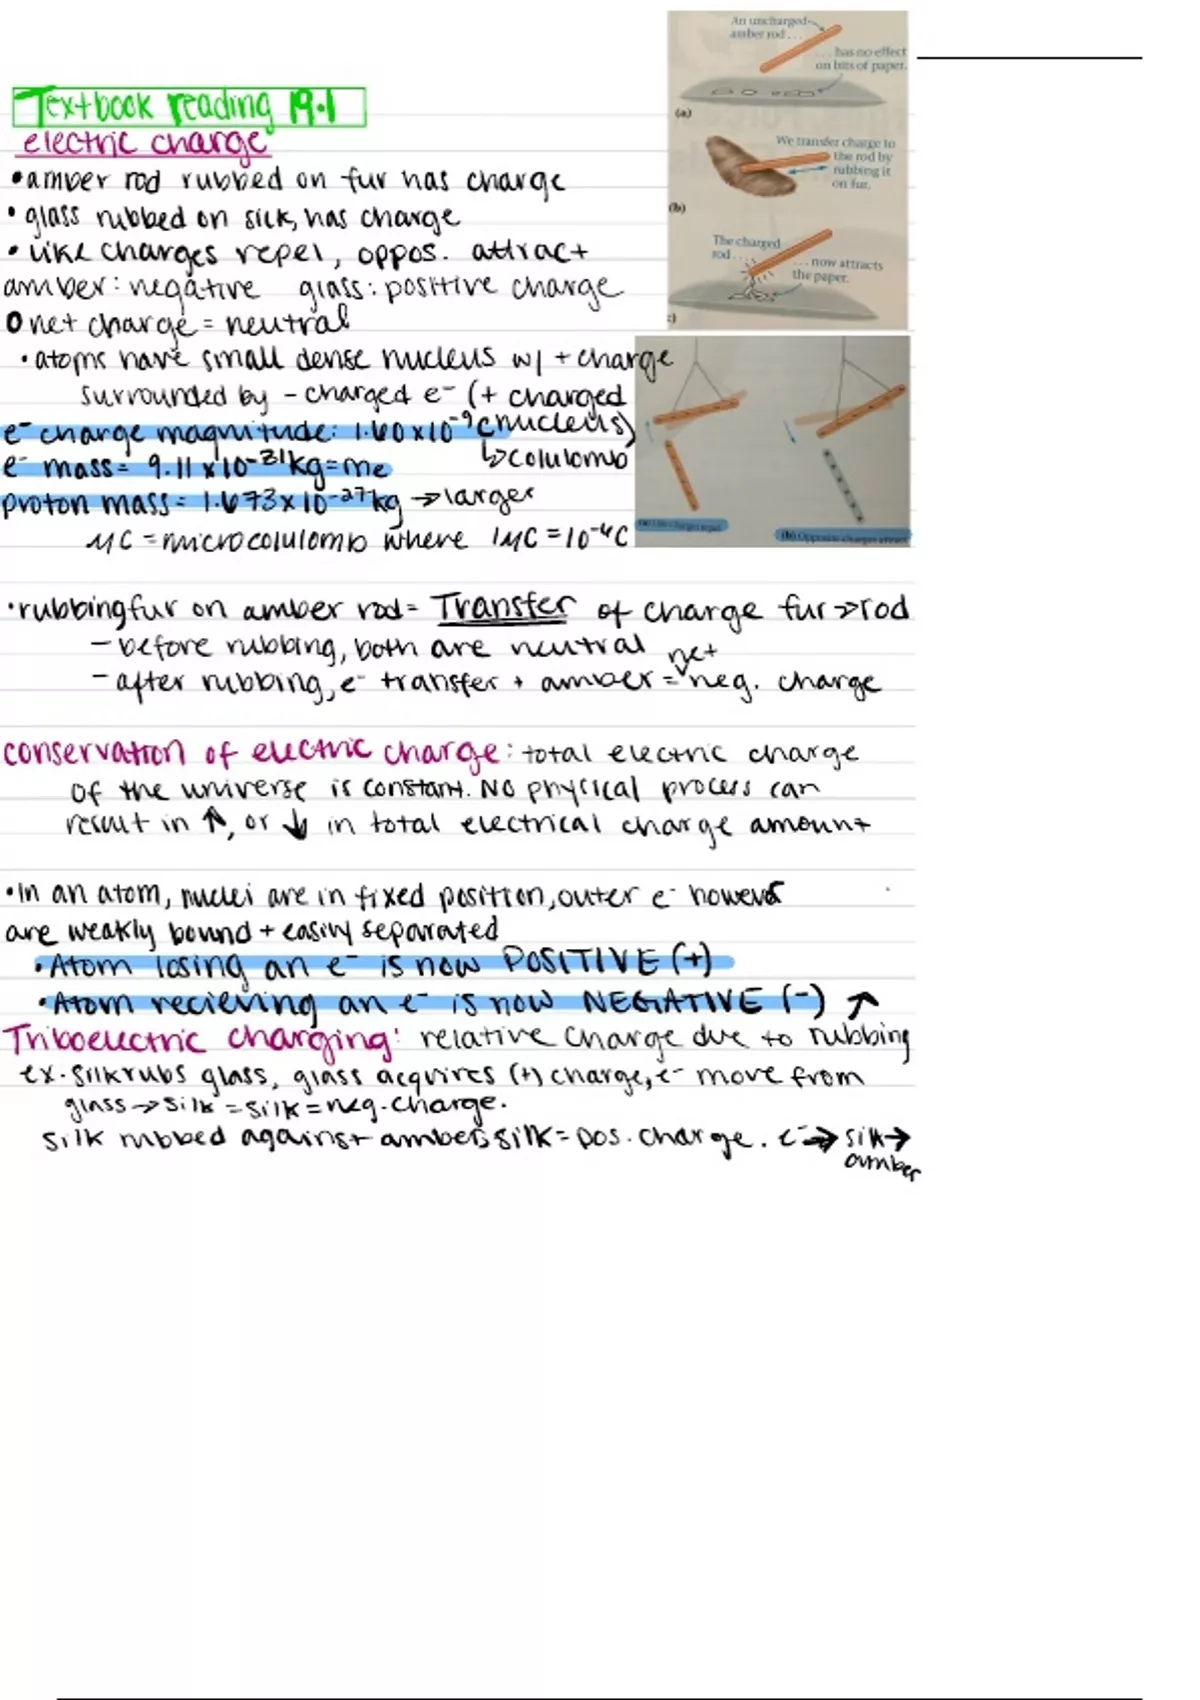 An uncharged
amber rod . . .
. . . has no effect
on bits of paper.
(a)
We transfer charge to
the rod by
rubbing it
on fur.
(b)
The charged
rod . . .
. . . now attracts
the paper.
Textbook reading 19.1
electric charge
• amber rod rubbed on fur has charge
• glass rubbed on silk, has charge
• like charges repel, oppos. attract
amber: negative glass: positive charge
0 net charge = neutral
• atoms have small dense nucleus w/ + charge
surrounded by - charged e⁻ (+ charged
nucleus)
e⁻ charge magnitude: 1.60x10⁻⁹C
↳ colulomb
e⁻ mass = 9.11x10⁻³¹kg=me
proton mass = 1.673x10⁻²⁷kg → larger
μC = microcolulomb where 1μC = 10⁻⁶C
(a) Like charges repel
(b) Opposite charges attract
• rubbing fur on amber rod = Transfer of charge fur → rod
- before rubbing, both are neutral
- after rubbing, e⁻ transfer + amber = net neg. charge
conservation of electric charge: total electric charge
of the universe is constant. No physical process can
result in ↑, or ↓ in total electrical charge amount
• In an atom, nuclei are in fixed position, outer e⁻ however
are weakly bound + easily separated
• Atom losing an e⁻ is now POSITIVE (+)
• Atom recieving an e⁻ is now NEGATIVE (-) ↑
Triboelectric charging: relative charge due to rubbing
ex. silk rubs glass, glass acquires (+) charge, e⁻ move from
glass → silk = silk = neg. charge.
silk rubbed against amber; silk = pos. charge. e⁻ → silk →
amber